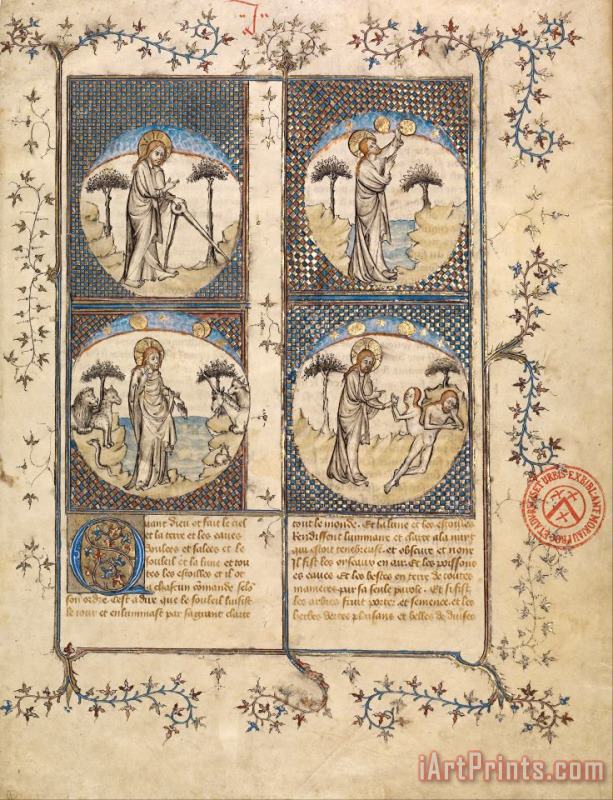 Quant dieu et fait le ciel
et la terre et les eaues
doulces et salees et le
souleil et la lune et tou
tes les estoilles et il ot
a chascun comande selo
son ordre. Cest a dire que le souleil luisist
le iour et enluminast par sa grant clarte
tout le monde. Et la lune et les estoilles
rendissent lumiere et clarte a la nuit
qui estoit tenebreuse. et obscure et noire
Il fist les oyseaux en air. Et les poissons
es eaues Et les bestes en terre de toutes
manieres par sa seule parole. Et si fist
les arbres fruit porter et semence. et les
herbes vertes plaisans et belles de diuses
iArtPrints.com